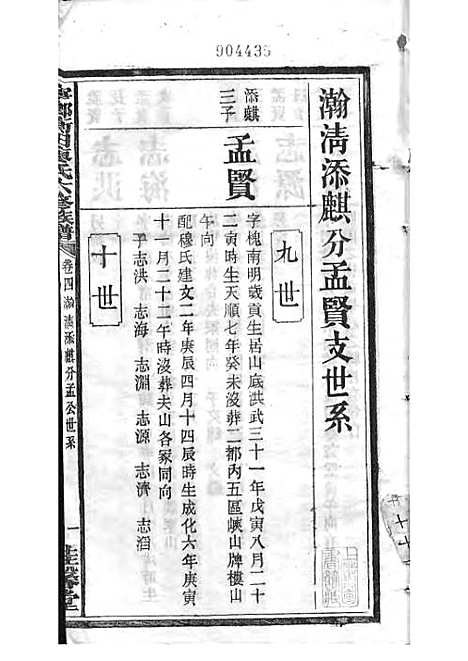 904435
瀚清添麒分孟賢支世系
九世
添麒三子
孟賢
字槐南明歲貢生居山底洪武三十一年戊寅八月二十
二寅時生天順七年癸未沒葬二都內五區峽山牌樓山
午向
配穆氏建文二年庚辰四月十四辰時生成化六年庚寅
十一月二十二午時沒葬夫山各冢同向
子志洪 志海 志淵 志源 志濟 志滔
十世
氏六修族譜
卷四瀚清添麒分孟公世系
一
堂